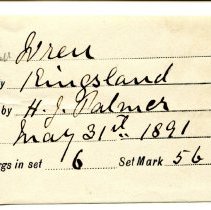 Wren
y Kingsland
by H. J. Palmer
May 31st 1891
ggs in set 6 Set Mark 56